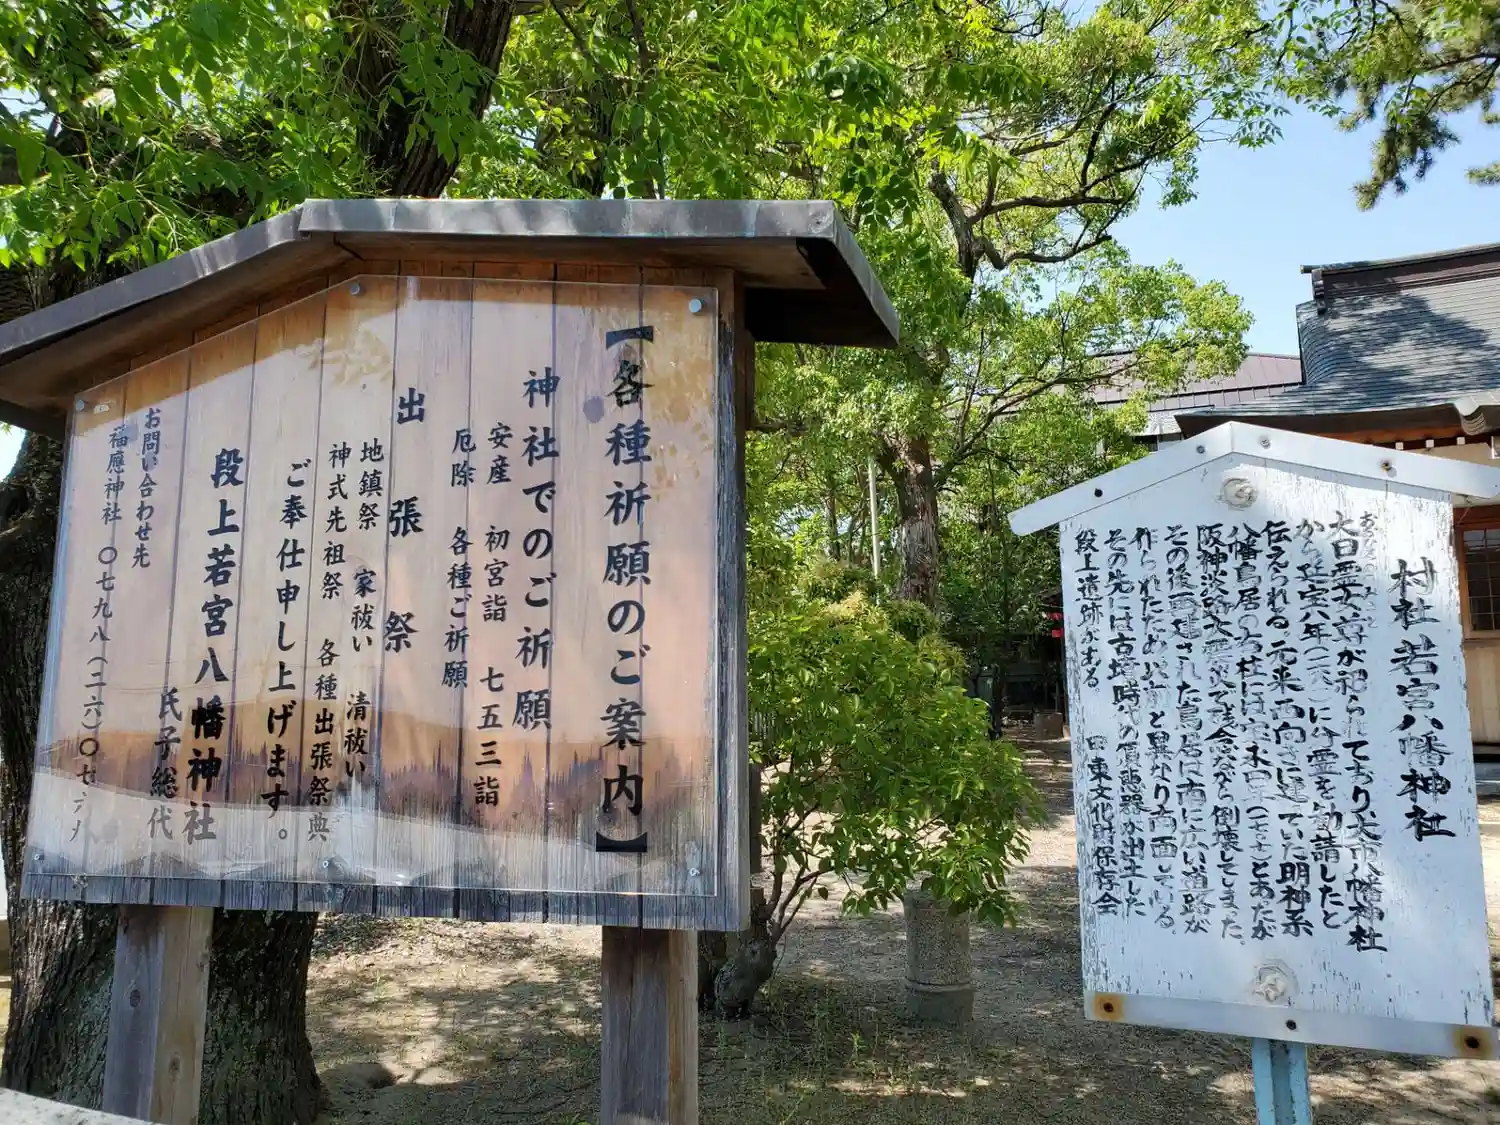 【各種祈願のご案内】
神社でのご祈願
安産 初宮詣 七五三詣
厄除 各種ご祈願
出張祭
地鎮祭 家祓い 清祓い
神式先祖祭 各種出張祭典
ご奉仕申し上げます。
段上若宮八幡神社
氏子総代
お問い合わせ先
福應神社 〇七九八(二六)〇七六九
村社 若宮八幡神社
大日霊女尊が祀られており大市八幡神社
から延宝八年(一六八〇)に分霊を勧請したと
伝えられる 元来西向きに建っていた明神系
八幡鳥居の右柱には
とあたが
阪神淡路大震災で残念ながら倒壊してしまった
その後再建された鳥居は南に広い道路が
作られたため以前と異なり南面している
その先には古墳時代の須恵器が出土した
段上遺跡がある
甲東文化財保存会